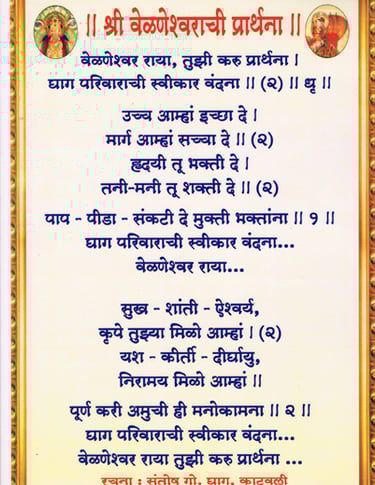 || श्री वेळणेश्वराची प्रार्थना ||
वेळणेश्वर राया, तुझी करु प्रार्थना |
घाग परिवाराची स्वीकार वंदना || (२) || धृ ||
उच्च आम्हां इच्छा दे |
मार्ग आम्हां सच्चा दे || (२)
हृदयी तू भक्ती दे |
तनी-मनी तू शक्ती दे || (२)
पाप - पीडा - संकटी दे मुक्ती भक्तांना || १ ||
घाग परिवाराची स्वीकार वंदना...
वेळणेश्वर राया...
सुख - शांती - ऐश्वर्य,
कृपे तुझ्या मिळो आम्हां | (२)
यश - कीर्ती - दीर्घायु,
निरामय मिळो आम्हां ||
पूर्ण करी अमुची ही मनोकामना || २ ||
घाग परिवाराची स्वीकार वंदना...
वेळणेश्वर राया तुझी करु प्रार्थना ...
रचना : संतोष गो. घाग, काटवली